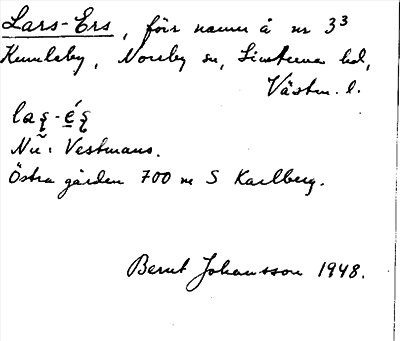 Lars-Ers, förr namn å nr 3³
Kumlaby, Norrby sn, Simtuna hd,
Västm. l.
laʂ-é̱ʂ
Nu: Vestmans.
Östra gården 700 m S Karlberg.
Bernt Johansson 1948.